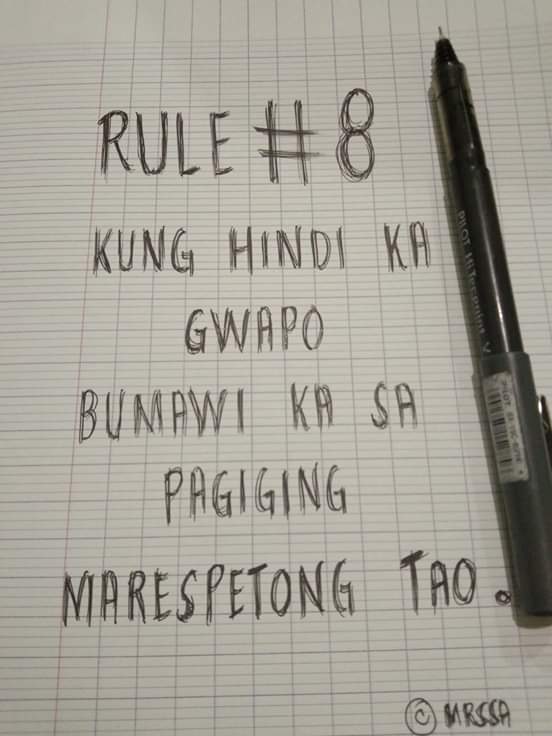 RULE #8
KUNG HINDI KA
GWAPO
BUMAWI KA SA
PAGIGING
MARESPETONG TAO.
© MRSSA
PILOT